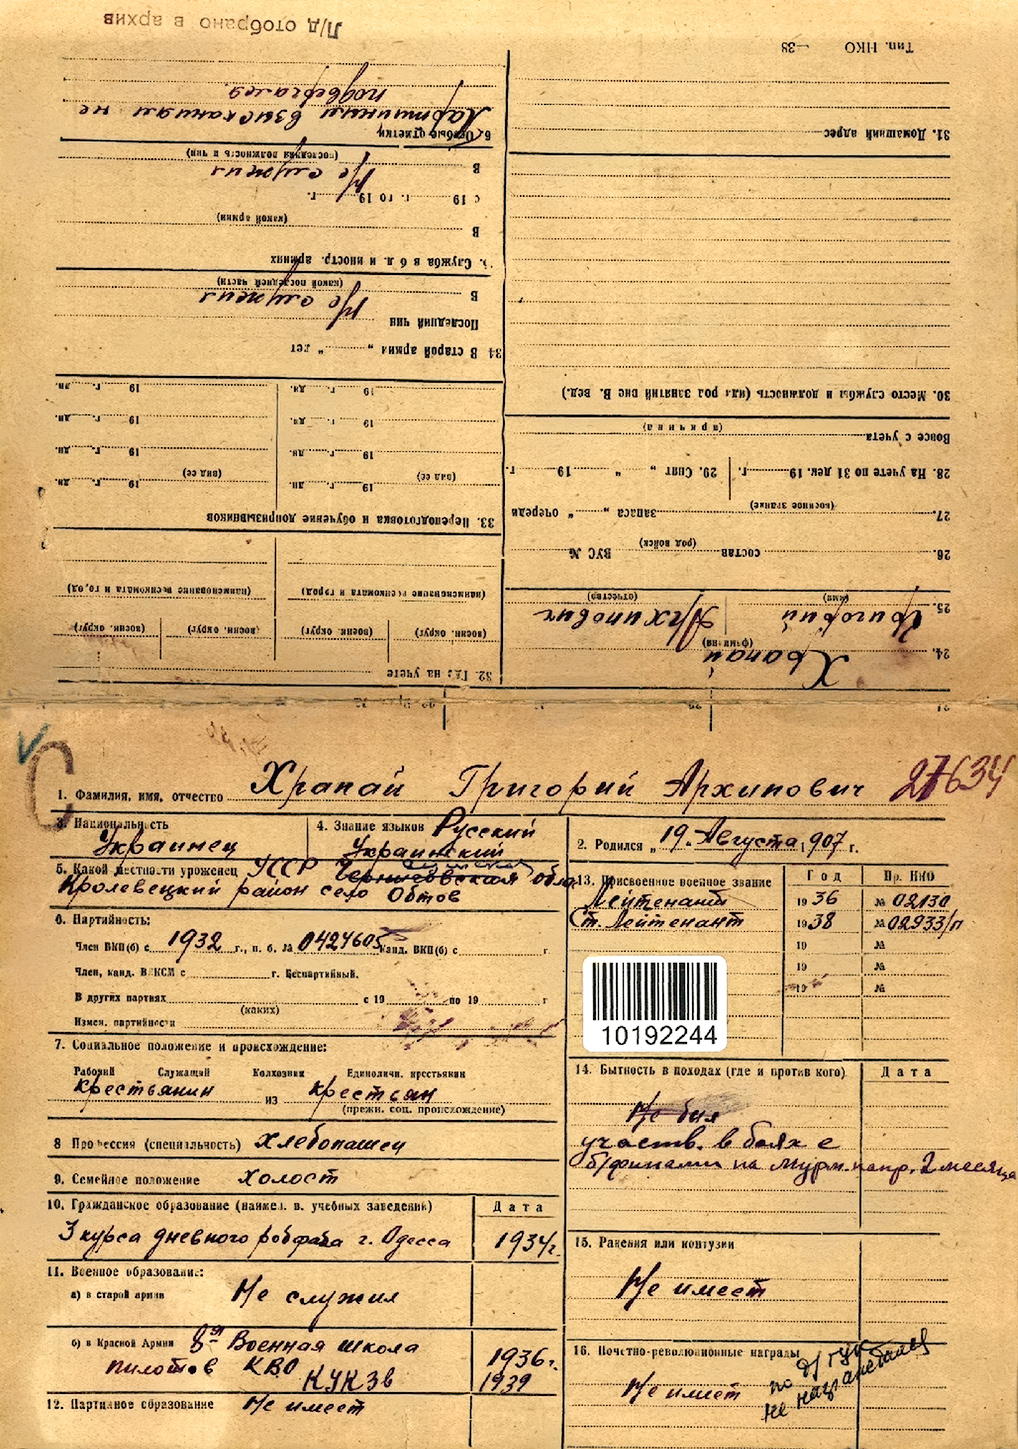 Л/д отобрано в архив
Тип. НКО —38
31. Домашний адрес
30. Место службы и должность (или род занятий вне В. вед.)
Вовсе с учета
(причина)
28. На учете по 31 дек. 19 г. 29. Снят „ “ 19 г.
27. (военное звание) запаса „ “ очереди
26. состав (род войск) ВУС №
25. Григорий Архипович
(имя) (отчество)
24. Храпай
(фамилия)
6. Особые отметки
Партийным взысканиям не
подвергался.
В Не служил
(последняя должность и чин)
с 19 г. по 19 г.
В
(какой армии)
Служба в б. и иностр. армиях
В Не служил
(какой последней части)
Последний чин
34 В старой армии „ “ лет
19 г. дн. 19 г. дн.
19 г. дн. 19 г. дн.
19 г. дн. 19 г. дн.
(вид ее) (вид ее)
19 г. дн. 19 г. дн.
33. Переподготовка и обучение допризывников
(наименование военкомата и город) (наименование военкомата и город)
(воен. округ) (воен. округ) (воен. округ) (воен. округ)
32. Где на учете
1. Фамилия, имя, отчество Храпай Григорий Архипович 27634
3. Национальность
Украинец
4. Знание языков Русский
Украинский
2. Родился „19“ Августа 1907 г.
5. Какой местности уроженец УССР Черниговская обла
Кролевецкий район село Обтов
6. Партийность:
Член ВКП(б) с 1932 г., п. б. № 0424605 Канд. ВКП(б) с г.
Член, канд. ВЛКСМ с г. Беспартийный.
В других партиях с 19 по 19 г
(каких)
Измен. партийности
13. Присвоенное военное звание Год Пр. НКО
Лейтенант 1936 № 02130
Ст. Лейтенант 1938 № 02933/п
19 №
19 №
19 №
10192244
7. Социальное положение и происхождение:
Рабочий Служащий Колхозник Единоличн. крестьянин
Крестьянин из крестьян
(прежн. соц. происхождение)
8 Профессия (специальность) Хлебопашец
9. Семейное положение Холост
10. Гражданское образование (наимен. в. учебных заведений) Дата
3 курса дневного робфака г. Одесса 1934г.
11. Военное образование:
а) в старой армии Не служил
б) в Красной Армии 8ая Военная школа
пилотов КВО 1936г.
КУКЗв 1939
12. Партийное образование Не имеет
14. Бытность в походах (где и против кого) Дата
Не был
участв. в боях с
б/финами на Мурм. напр. 2 месяца
15. Ранения или контузии
Не имеет
16. Почетно-революционные награды
Не имеет
по д/ ГУК
не награжден